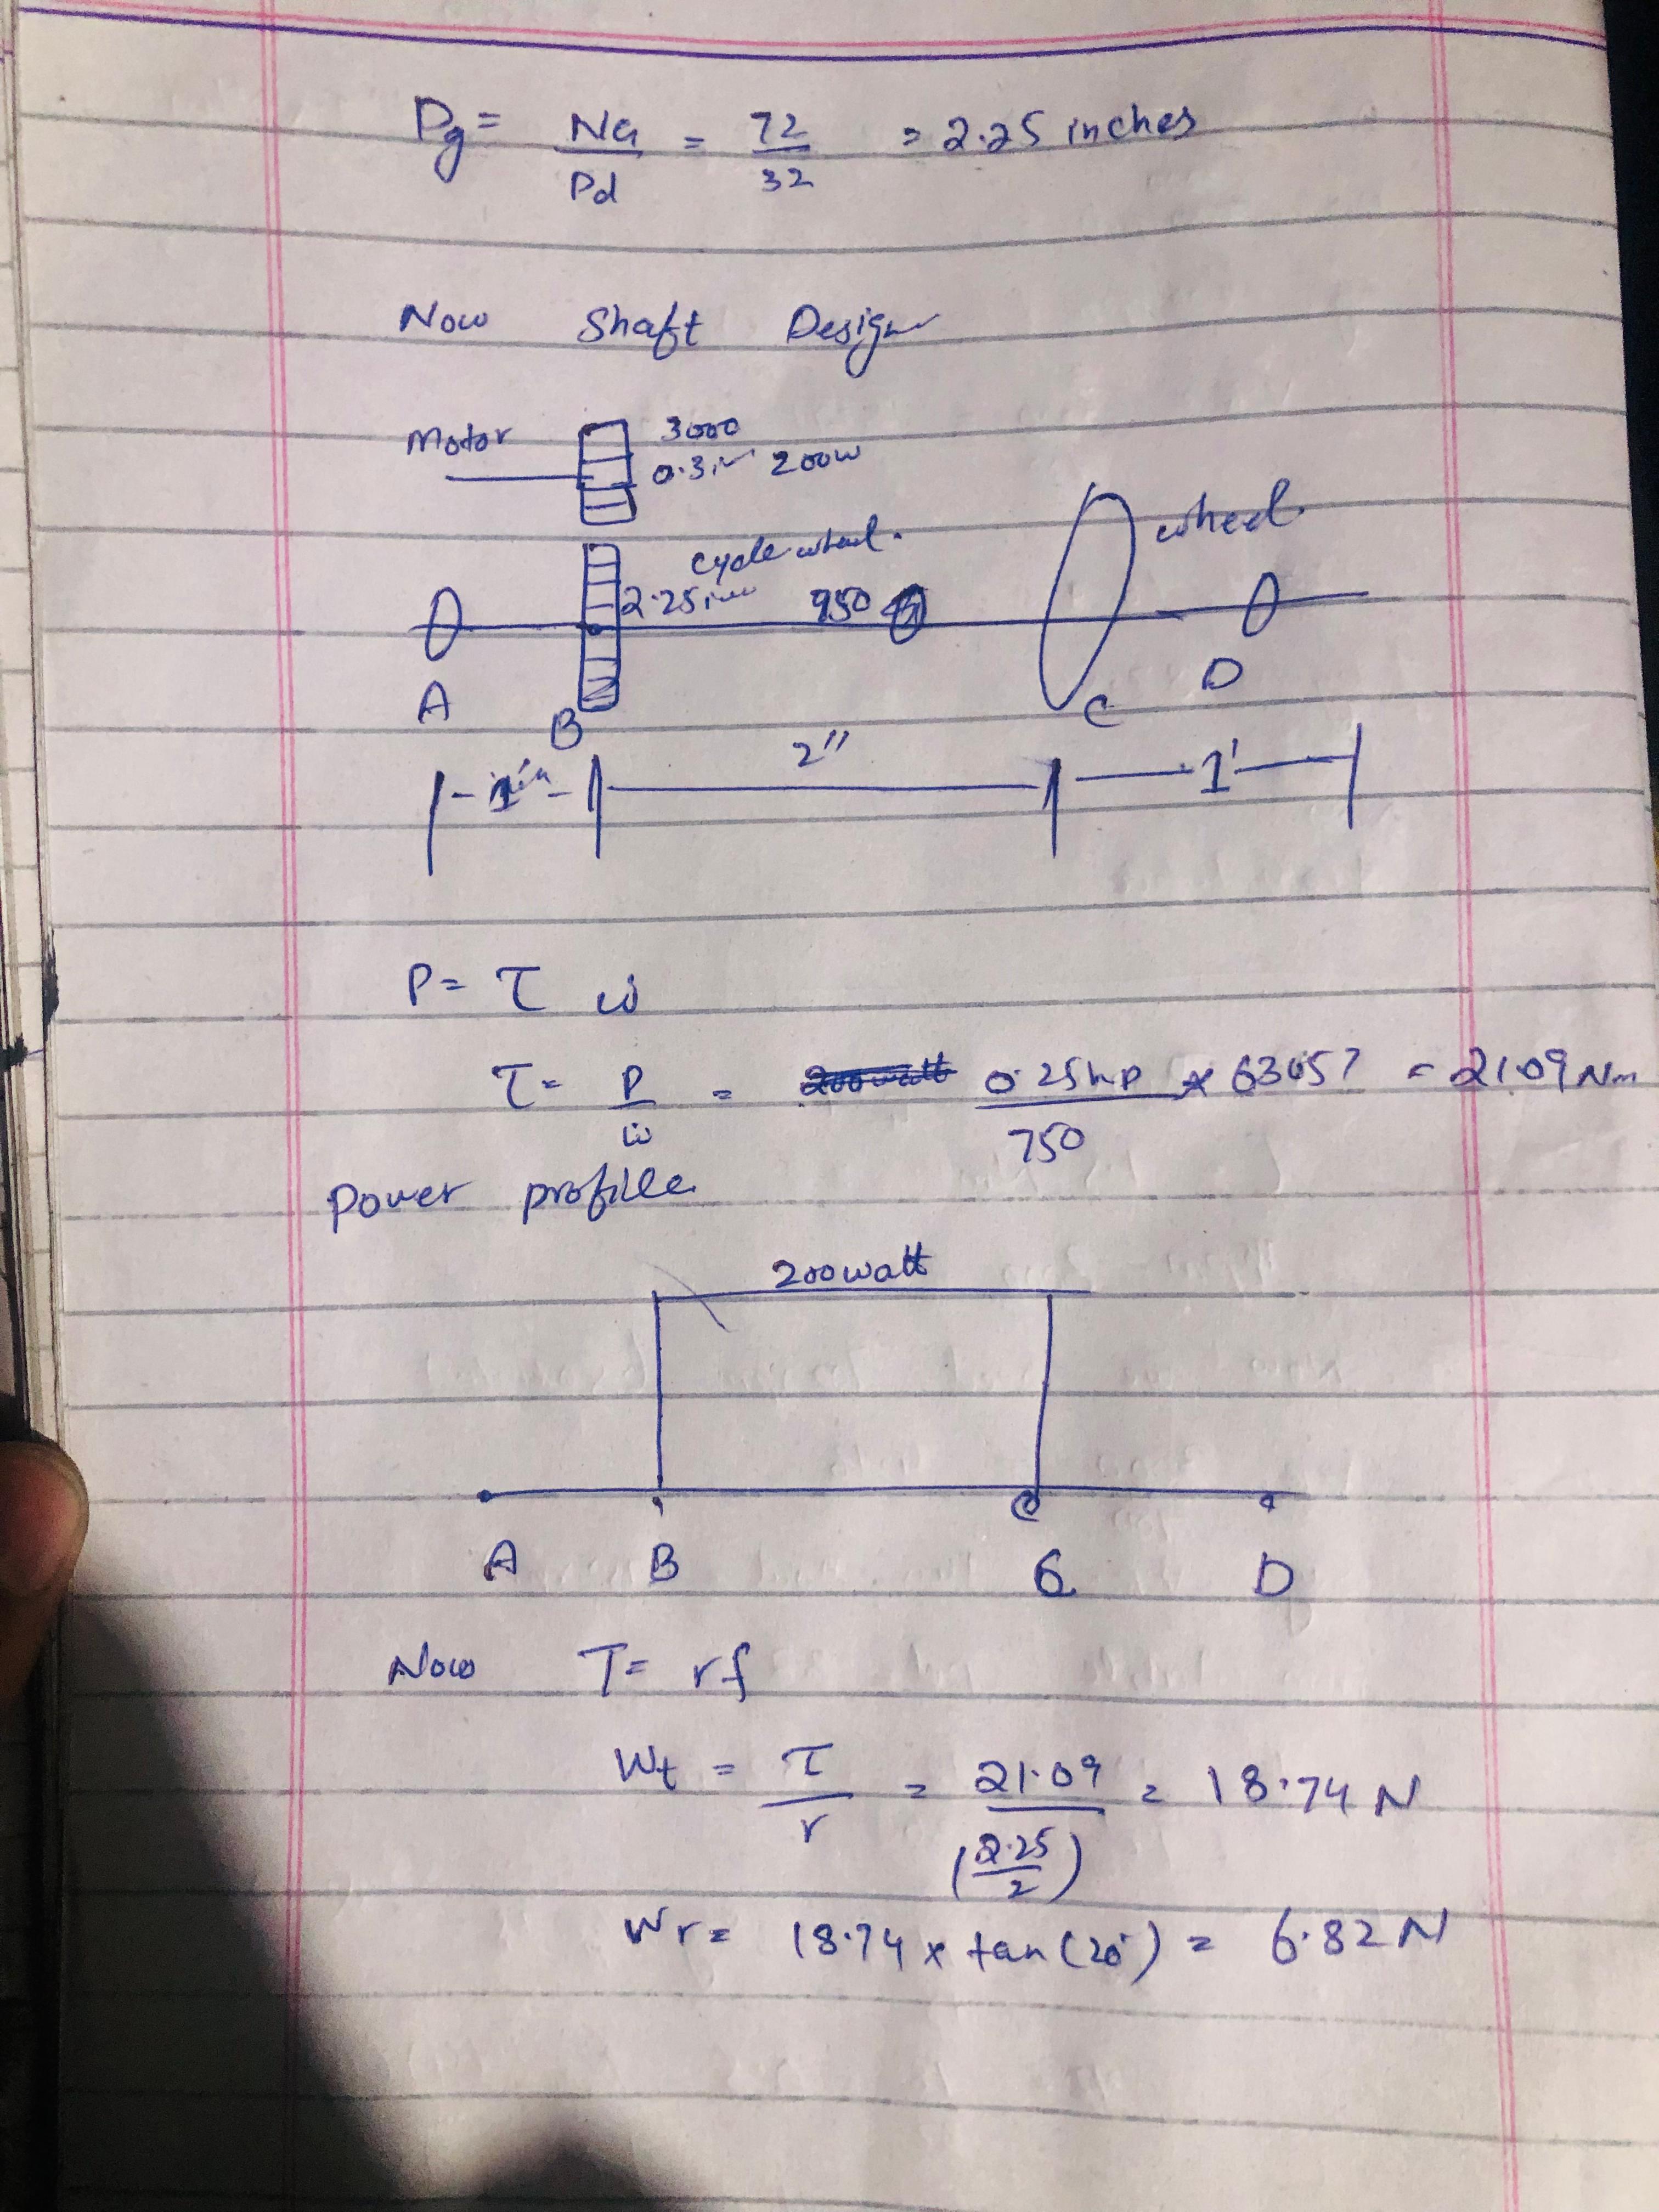 Dg = NG/Pd = 72/32 = 2.25 inches
Now Shaft Design
Motor 3000
0.3in 200w
cycle wheel. wheel
2.25in 950
A B C D
1" 2" 1'
P = τ ω
τ = P/ω = 0.25hp/750 × 63057 = 21.09 Nm
Power profile
200watt
A B C D
Now T = rf
Wt = τ/r = 21.09/(2.25/2) = 18.74 N
Wr = 18.74 × tan(20°) = 6.82 N